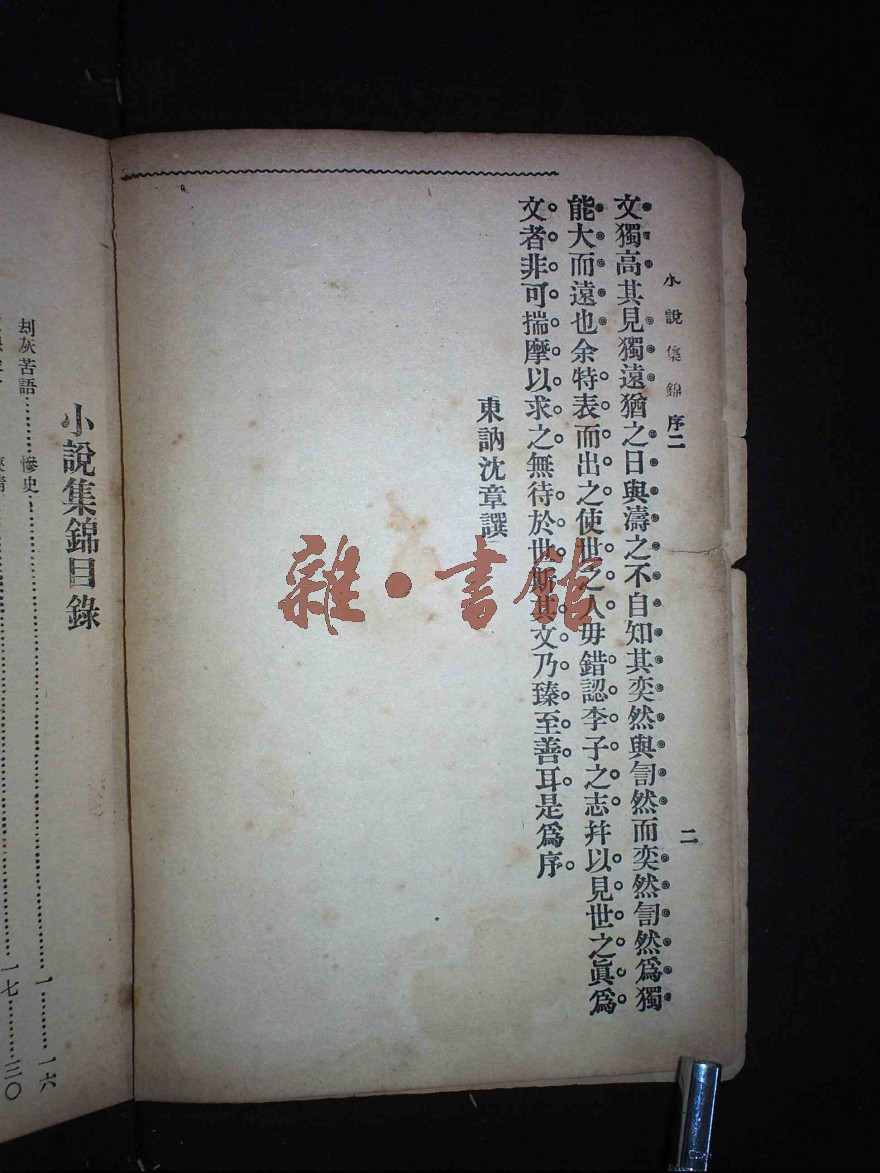 小說集錦 序二
二
文獨高其見獨遠猶之日與濤之不自知其奕然與訇然而奕然訇然爲獨
能大而遠也余特表而出之使世之人毋錯認李子之志幷以見世之眞爲
文者非可揣摩以求之無待於世斯其文乃臻至善耳是爲序
東訥沈章譔
雜·書館
小說集錦目錄
刦灰苦語………慘史………一………一六
一七………三〇